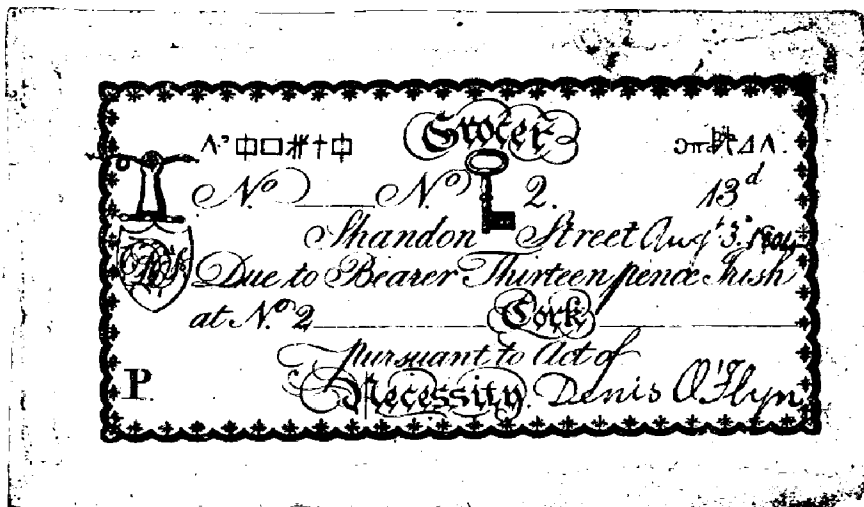 Grocer
No. ____ No. 2. 13d
Shandon Street Augt. 3. 1804
Due to Bearer Thirteen pence Irish
at No. 2 ____ Cork ____
pursuant to Act of
P. Necessity. Denis O'Flyn